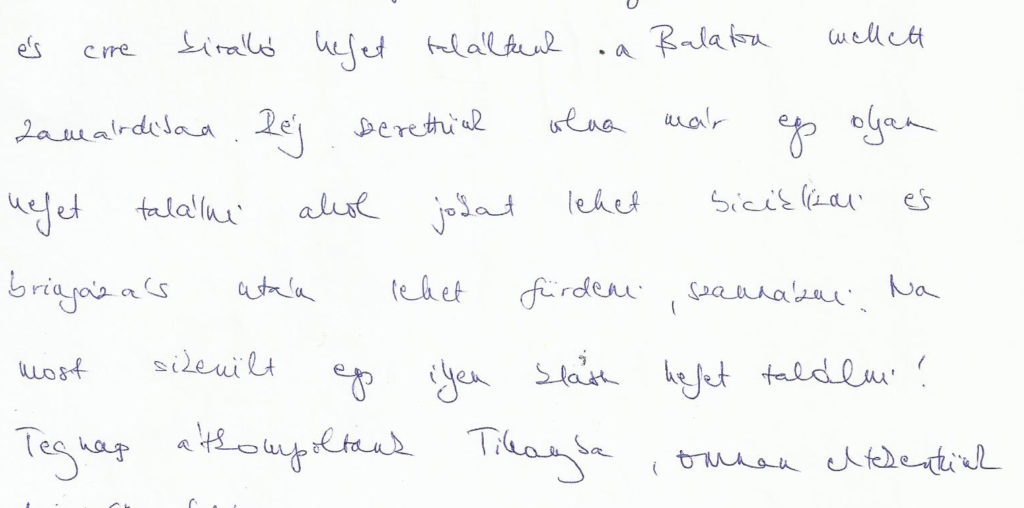 és erre kiváló helyet találtunk . a Balaton mellett
Zamárdiban. Rég szerettünk volna már egy olyan
helyet találni ahol jókat lehet biciklizni és
bringázás után lehet fürdeni, szaunázni. Na
most sikerült egy ilyen klassz helyet találni!
Tegnap átkompoltunk Tihanyba, onnan eltekertünk